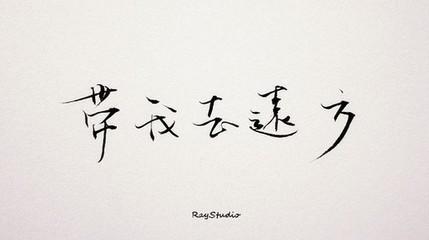 帶我去遠方
RayStudio